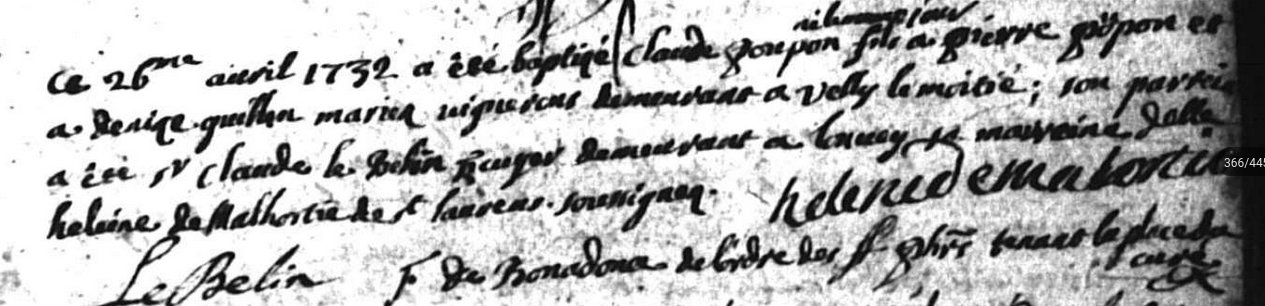 Ce 26me auril 1732 a été baptizé Claude poupon fils a pierre popon et
a denize guillin mariez uignerons demeurant a velly le moitié ; son parrein
a été sr Claude le Belin Ecuyer demeurant a sa marreine dalle
helaine de Malhortie de st laurens . soussignez . helene de mahortie
Le Belin f de Bonadona de l'ordre des ff tenant la place du
curé
366/445